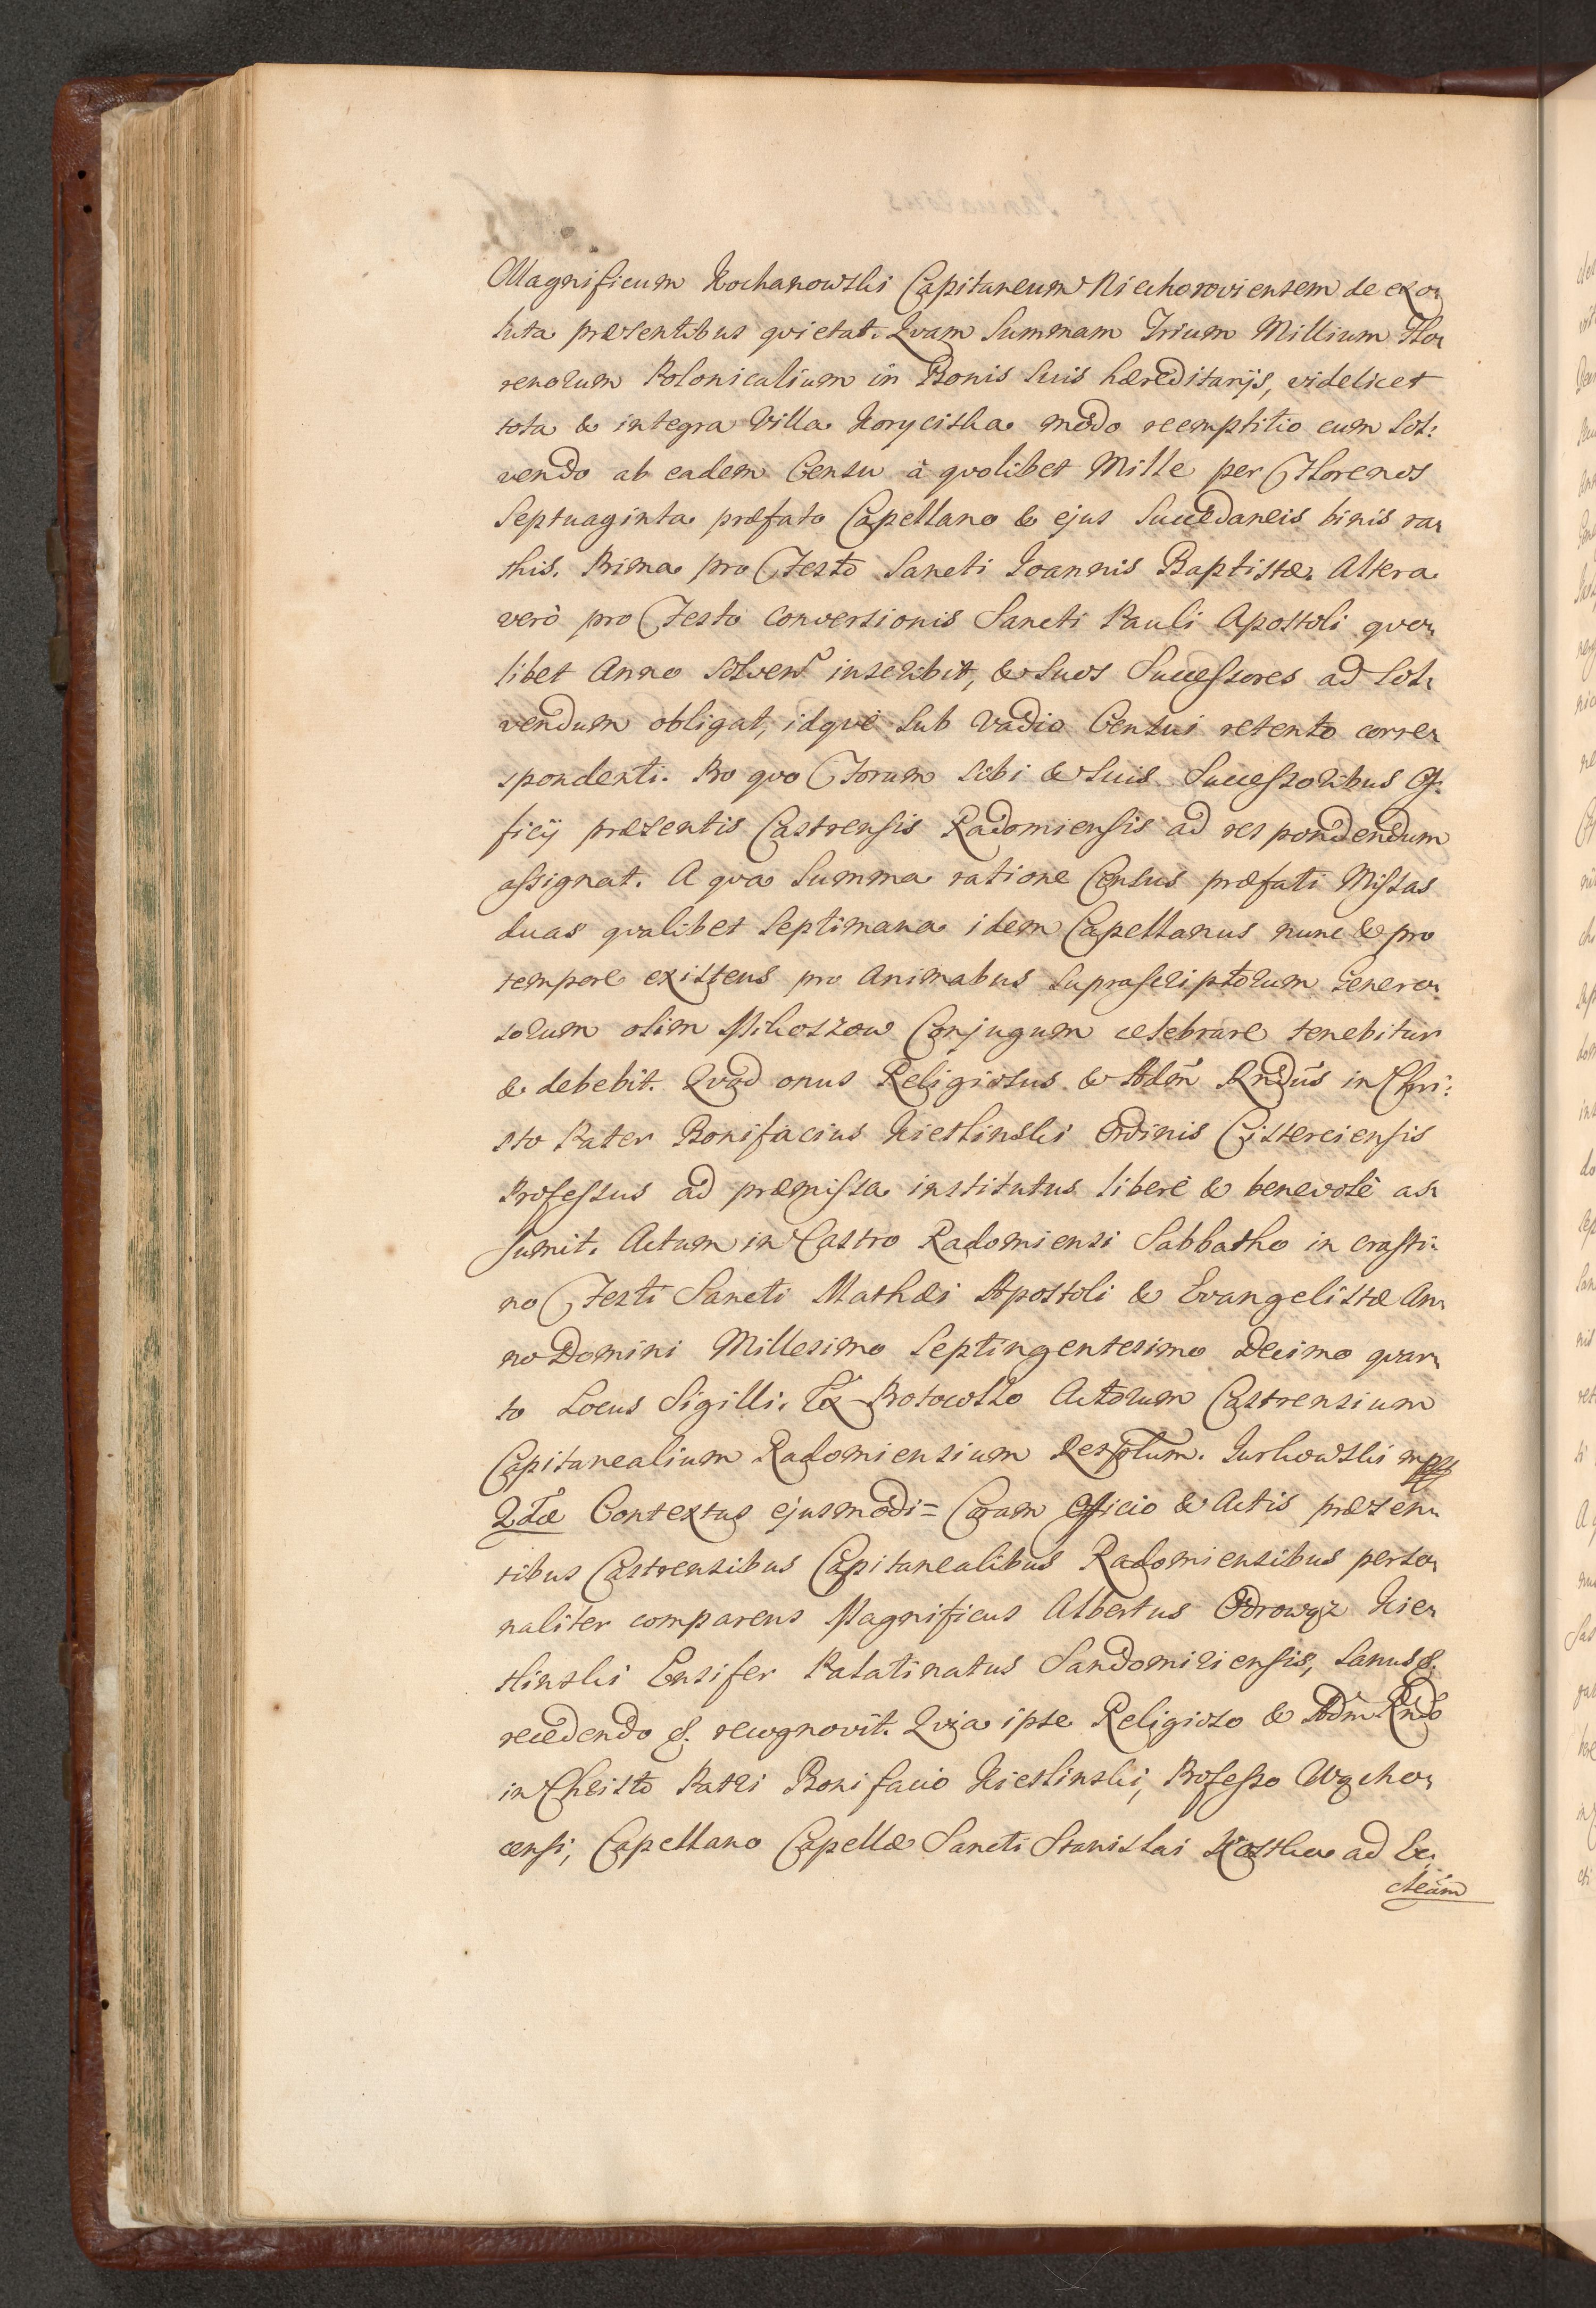 Magnificum Kochanowski Capitaneum Niechoroviensem de exo,
luta præsentibus qvietat. Qvam Summam Trium Millium Flo,
renorum Polonicalium in Bonis Suis hæreditarijs, videlicet
tota & integra Villa Koryciska modo reemptitio cum Sol:
vendo ab eadem Censu à qvolibet Mille per Florenos
Septuaginta præfato Capellano & ejus Succedaneis binis ra,
this. Prima pro Festo Sancti Joannis Baptistæ. Altera
verò pro Festo Conversionis Sancti Pauli Apostoli qvo,
libet Anno Solven inscribit, & Suos Successores ad Sol,
vendum obligat, idqve Sub Vadio Censui retento corre,
spondenti. Pro qvo Forum Sibi & Suis Successoribus Of.
ficij præsentis Castrensis Radomiensis ad respondendum
assignat. A qva Summa ratione Census præfati Missas
duas qvalibet Septimana idem Capellanus nunc & pro
tempore existens pro Animabus Suprascriptorum Genero,
sorum olim Mikoszow Conjugum celebrare tenebitur
& debebit. Qvod onus Religiosus & Adm̃ Rñdus in Chri:
sto Pater Bonifacius Kietlinski Ordinis Cisterciensis
Professus ad præmissa institutus liberè & benevolè as,
sumit. Actum in Castro Radomiensi Sabbatho in crasti,
no Festi Sancti Mathæi Apostoli & Evangelistæ An,
no Domini Millesimo Septingentesimo Decimo qvar,
to Locus Sigilli. Ex Protocollo Actorum Castrensium
Capitanealium Radomiensium Rescptum. Jurkowski mpp
2dæ Contextus ejusmodi = Coram Officio & Actis præsen,
tibus Castrensibus Capitanealibus Radomiensibus perso,
naliter comparens Magnificus Albertus Odrowąz Kie,
tlinski Ensifer Palatinatus Sandomiriensis, Sanus &.
recedendo &. recognovit. Qvia ipse Religioso & Adm̃ Rñdo
in Christo Patri Bonifacio Kietlinski, Professo Wącho,
censi, Capellano Capellæ Sancti Stanislai Kostka ad Ec,
cleam